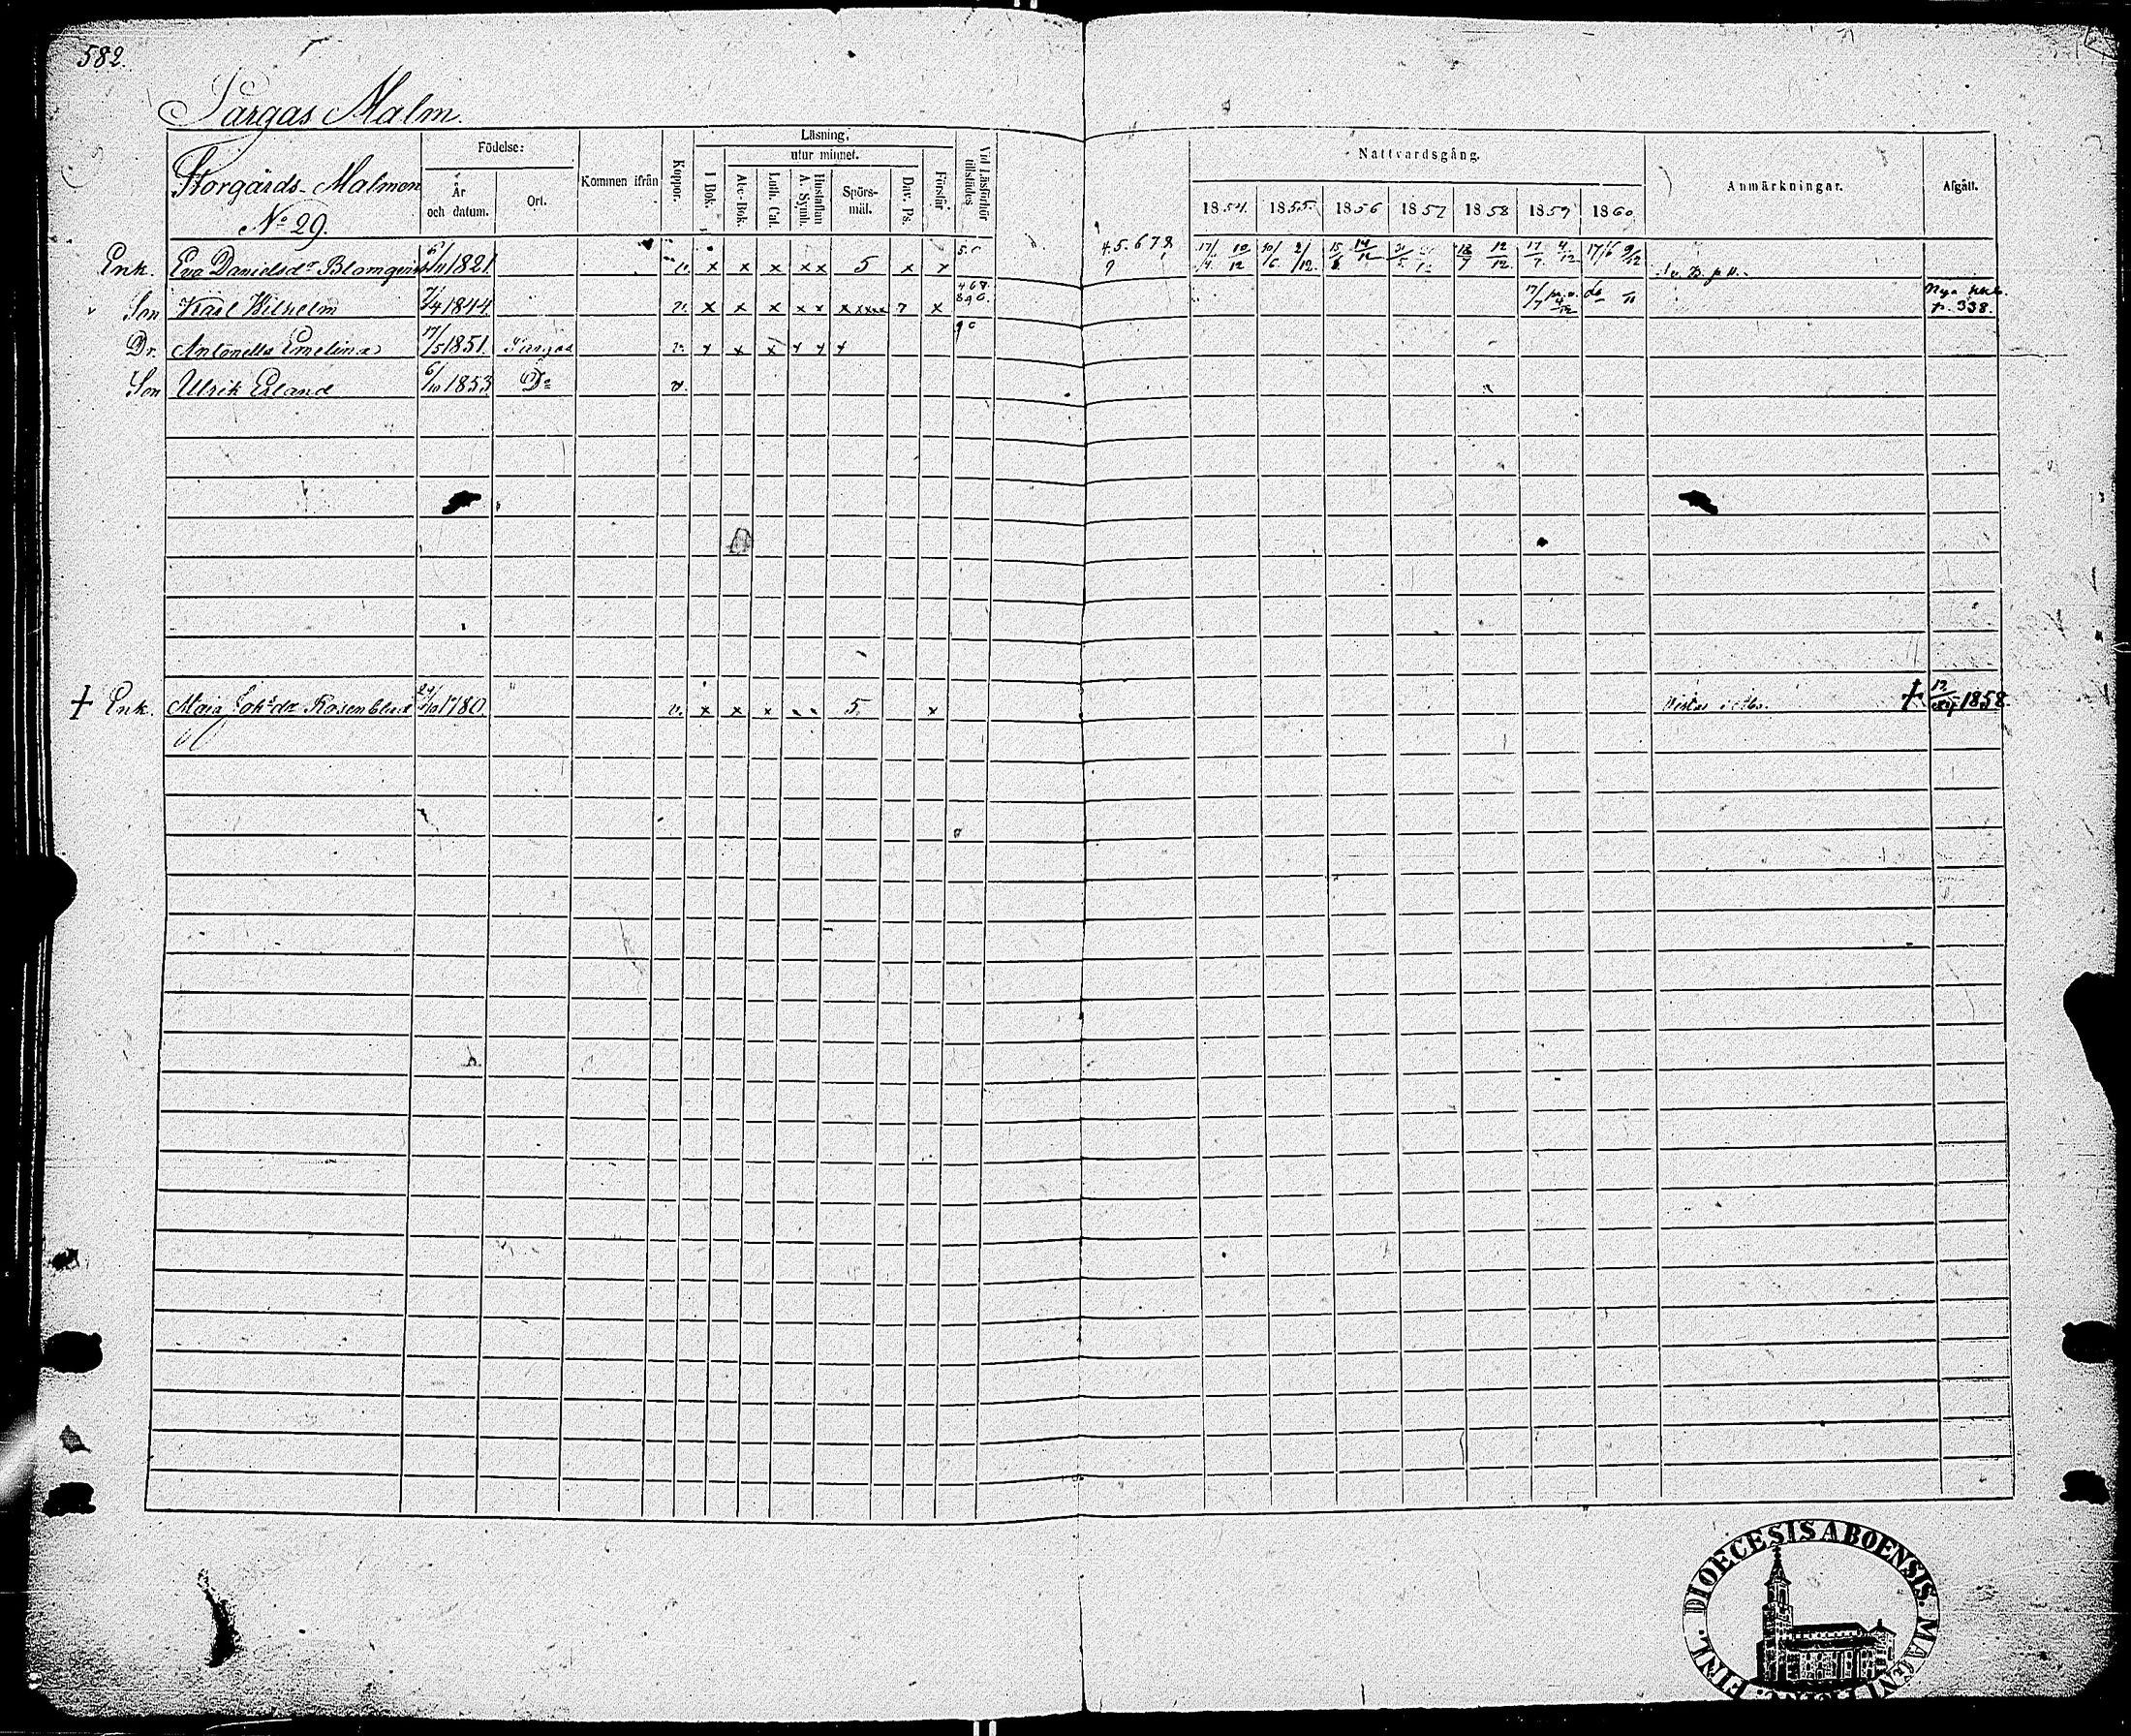 582.
Pargas Malm.
Storgårds-Malmen
No 29.
Födelse:
År och datum.
Ort.
Kommen ifrån
Koppor.
Läsning.
utur minnet.
I Bok.
Abc-Bok.
Luth. Cat.
Hustaflan A. Symb.
Spörsmål.
Dav. Ps.
Förstår
Vid Läsförhör tillstädes
Nattvardsgång.
1854. 1855. 1856 1857 1858 1859 1860.
Anmärkningar.
Afgått.
Enk. Eva Danielsdr Blomqvist 1821. v. x x x x x 5 x x 4 5. 6 7 8 9 17/4 10/12 9/12. 14/12 13/7 12/12. 17/7. 4/12 17/6 9/12
Son Karl Wilhelm 7/4 1844 v. x x x x x x xxxx 7 x do Nya kkb. p. 338.
Dr. Antonetta Emelina 17/5 1851. Pargas v. x x x x x x
Son Ulrik Erland 6/10 1853 Do v.
+ Enk. Maja Johsdr Rosenblad 1780. v. x x x x x 5. x Vistas i Åbo. + 1858.
DIOECESIS ABOENSIS. MAGNI FINL.